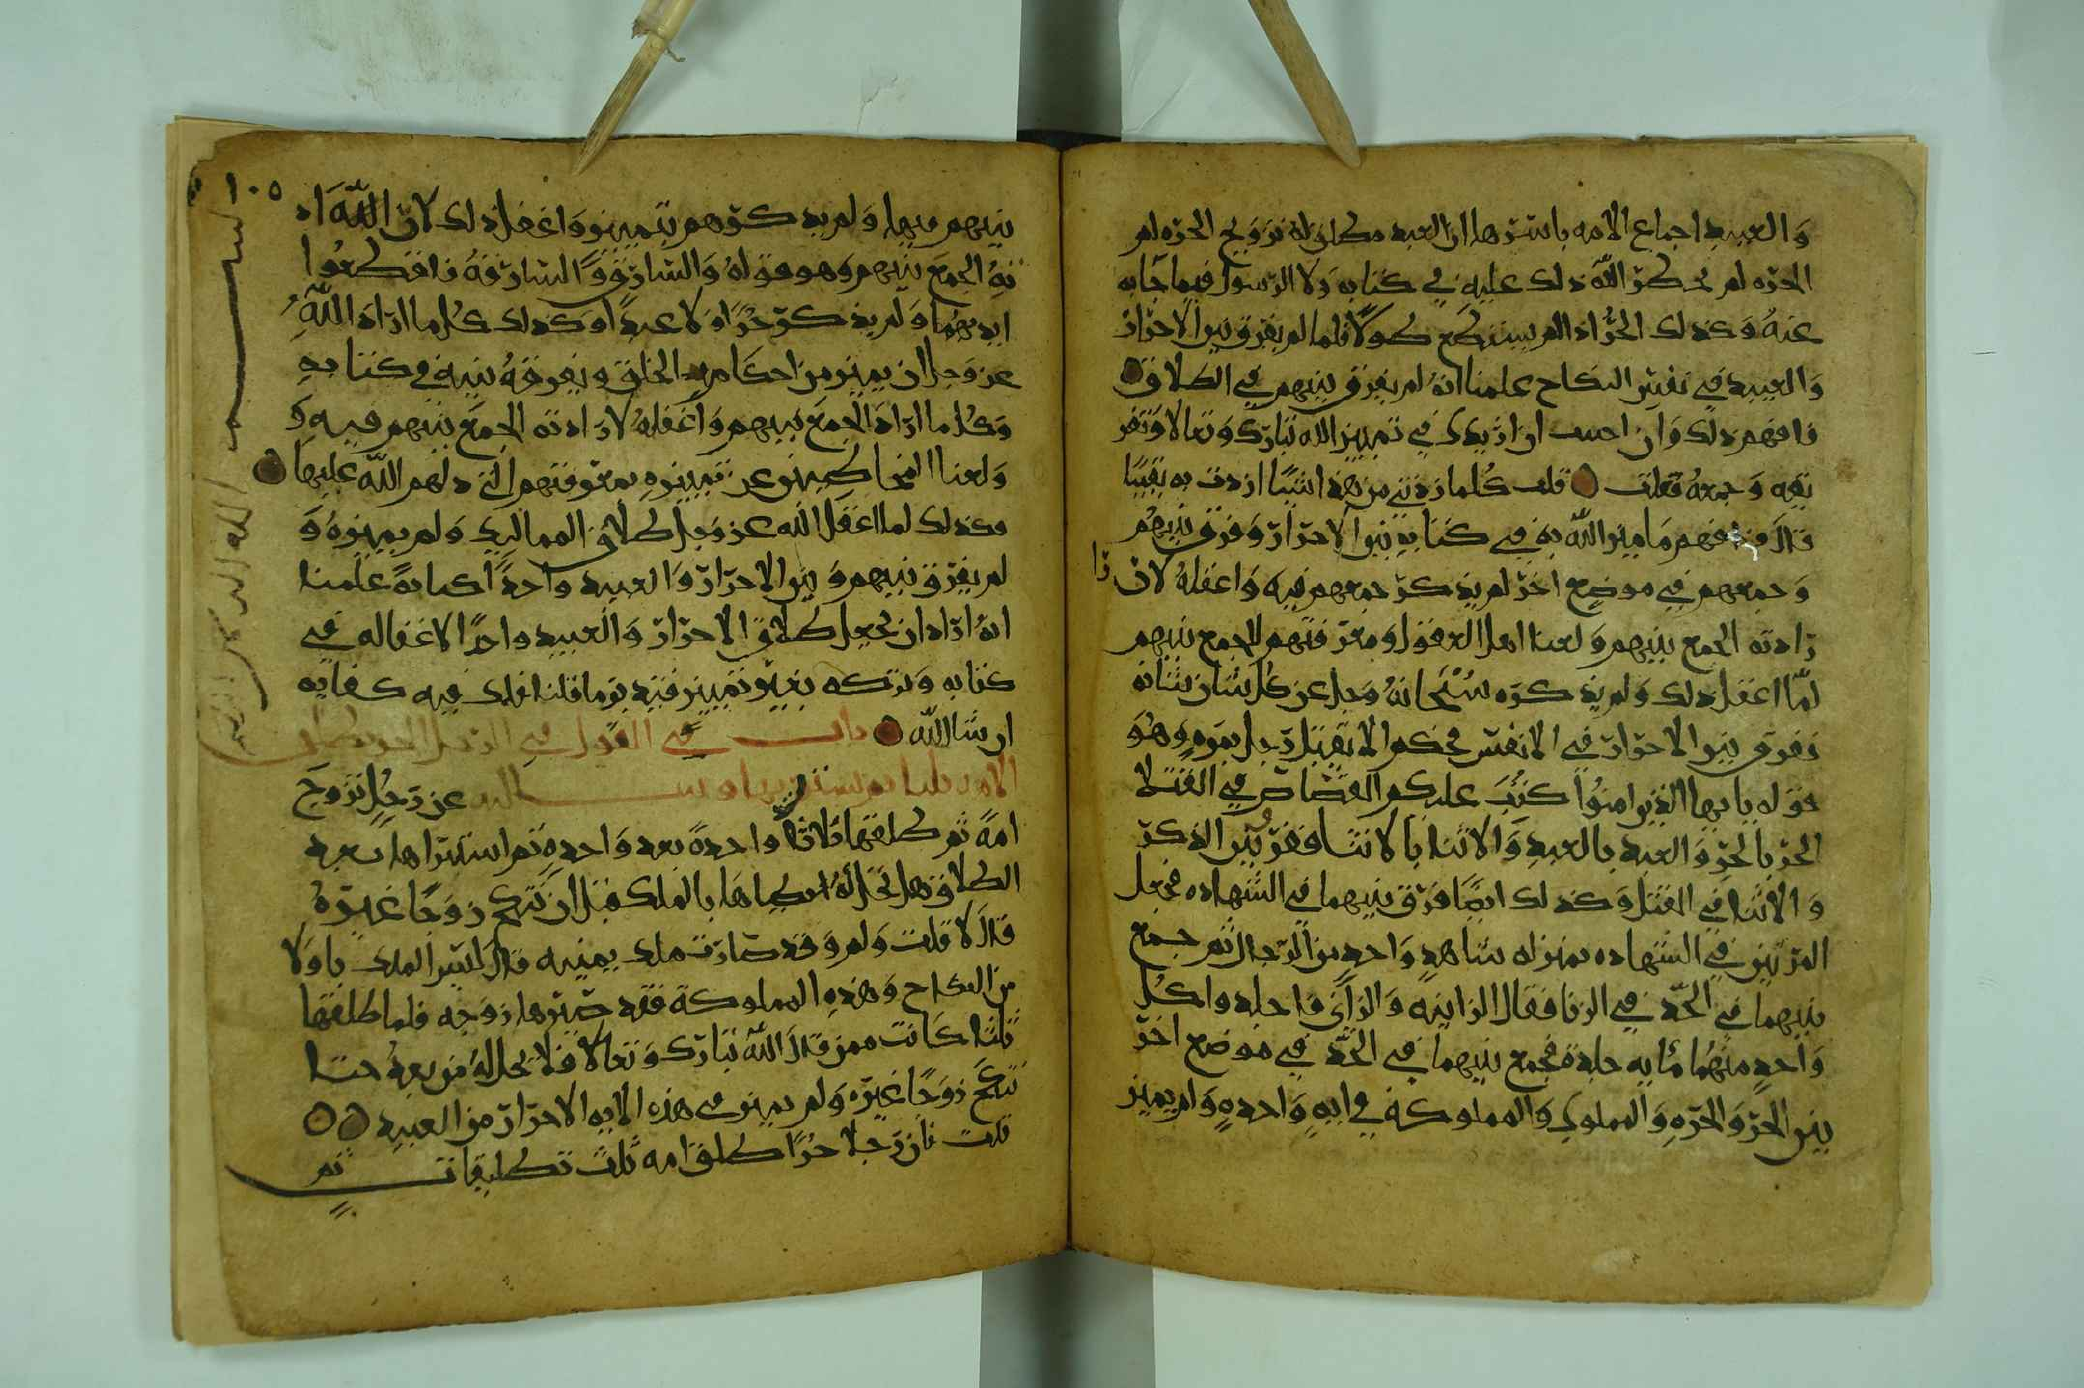 والعبيد اجماع الامه باسرها ان العبد مطلق له تزويج الحره لم
الحره لم يحظر الله ذلك عليه في كتابه ولا الرسول فيما جا به
عنه وكذلك الحر اذا لم يستطع طولا فلما لم يفرق بين الاحرار
والعبيد في تفسير النكاح علمنا انه لم يفرق بينهم في الطلاق
فافهم ذلك وان احببت ان ازيدك في تمييز الله تبارك وتعالا وتفر
يقه وجمعه فعلت قلت كلما زدتني من هذا شيا ازددت به يقينا
قال فافهم ما ميز الله به في كتابه بين الاحرار وفرق بينهم
وجمعهم في موضع اخر لم يذكر جمعهم فيه واغفله لان
رادته الجمع بينهم ولعنا اهل العقول ومعرفتهم للجمع بينهم
لما اغفل ذلك ولم يذكره سبحانه وجل عن كل شان شانه
ففرق بين الاحرار في الانفس فحكم الا يقتل رجل بمره وهو
قوله يايها الذين امنوا كتب عليكم القصاص في القتلا
الحر بالحر والعبد بالعبد والانثا بالانثا ففرق بين الذكر
والانثا في القتل وكذلك ايضا فرق بينهما في الشهاده فجعل
المرتين في الشهاده بمنزله شاهد واحد من الرجال ثم جمع
بينهما في الحد في الزنا فقال الزانيه والزاني فاجلدوا كل
واحد منهما مايه جلدة فجمع بينهما في الحد في موضع اخر
بين الحر والحره والمملوك والمملوكة في ايه واحده ولم يميز
١٠٥
بينهم فيها ولم يذكرهم بتمييز واغفل ذلك لان الله اراد
به الجمع بينهم وهو قوله والسارق والسارقة فاقطعوا
ايديهما ولم يذكر حرا ولا عبدا وكذلك كل ما اراد الله
عز وجل ان يميز من احكام الخلق ويفرقه بينه في كتابه
وكل ما اراد الجمع بينهم واغفله لارادته الجمع بينهم فيه و
تمييزه بمعرفتهم الذي دلهم الله عليها
فكذلك لما اغفل الله عز وجل طلاق المماليك ولم يميزه و
لم يفرق بينهم وبين الاحرار والعبيد واحدا علمنا
انه اراد ان يجعل طلاق الاحرار والعبيد واحدا لاغفاله في
كتابه وتركه بغير تمييز فتدبر ما قلنا فلك فيه كفايه
ان شا الله باب في القول في الرجل الحر يطلق
الامه ثم يشتريها وسالته عن رجل تزوج
امة ثم طلقها ثلاثا واحدة بعد واحده ثم اشتراها بعد
الطلاق هل تحل له بالملك قبل ان تنكح زوجا غيره
قال لا قلت ولم وقد صارت ملك يمينه قال ليس الملك باولا
من النكاح وهذه المملوكة فقد صيرها زوجه فلما طلقها
ثلثا كانت ممن قال الله تبارك وتعالا فلا تحل له من بعد حتا
تنكح زوجا غيره ولم يميز في هذه الايه الاحرار من العبيد
قلت فان رجلا حرا طلق امه ثلث تطليقات ثم